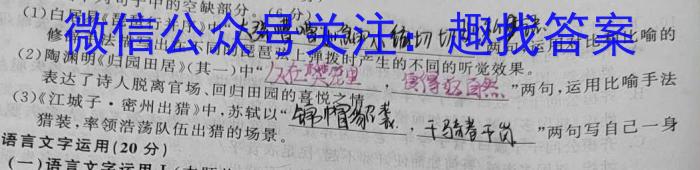 列句子中的空缺部分。(6分)
(1)白居易《琵琶行》中"大弦嘈嘈
微信公众号关注：趣找答案
修
琵琶弦上弹拨时产生的不同的听觉效果。
(2)陶渊明《归园田居》(其一)中"久在樊笼里，复得返自然"两句,运用比喻手法
表达了诗人脱离官场、回归田园的喜悦之情。
(3)《江城子·密州出猎》中,苏轼以"锦帽貂裘，千骑卷平岗"两句写自己一身
猎装,率领浩荡队伍出猎的场景。
语言文字运用(20分)
(一)语言文字运用Ⅰ